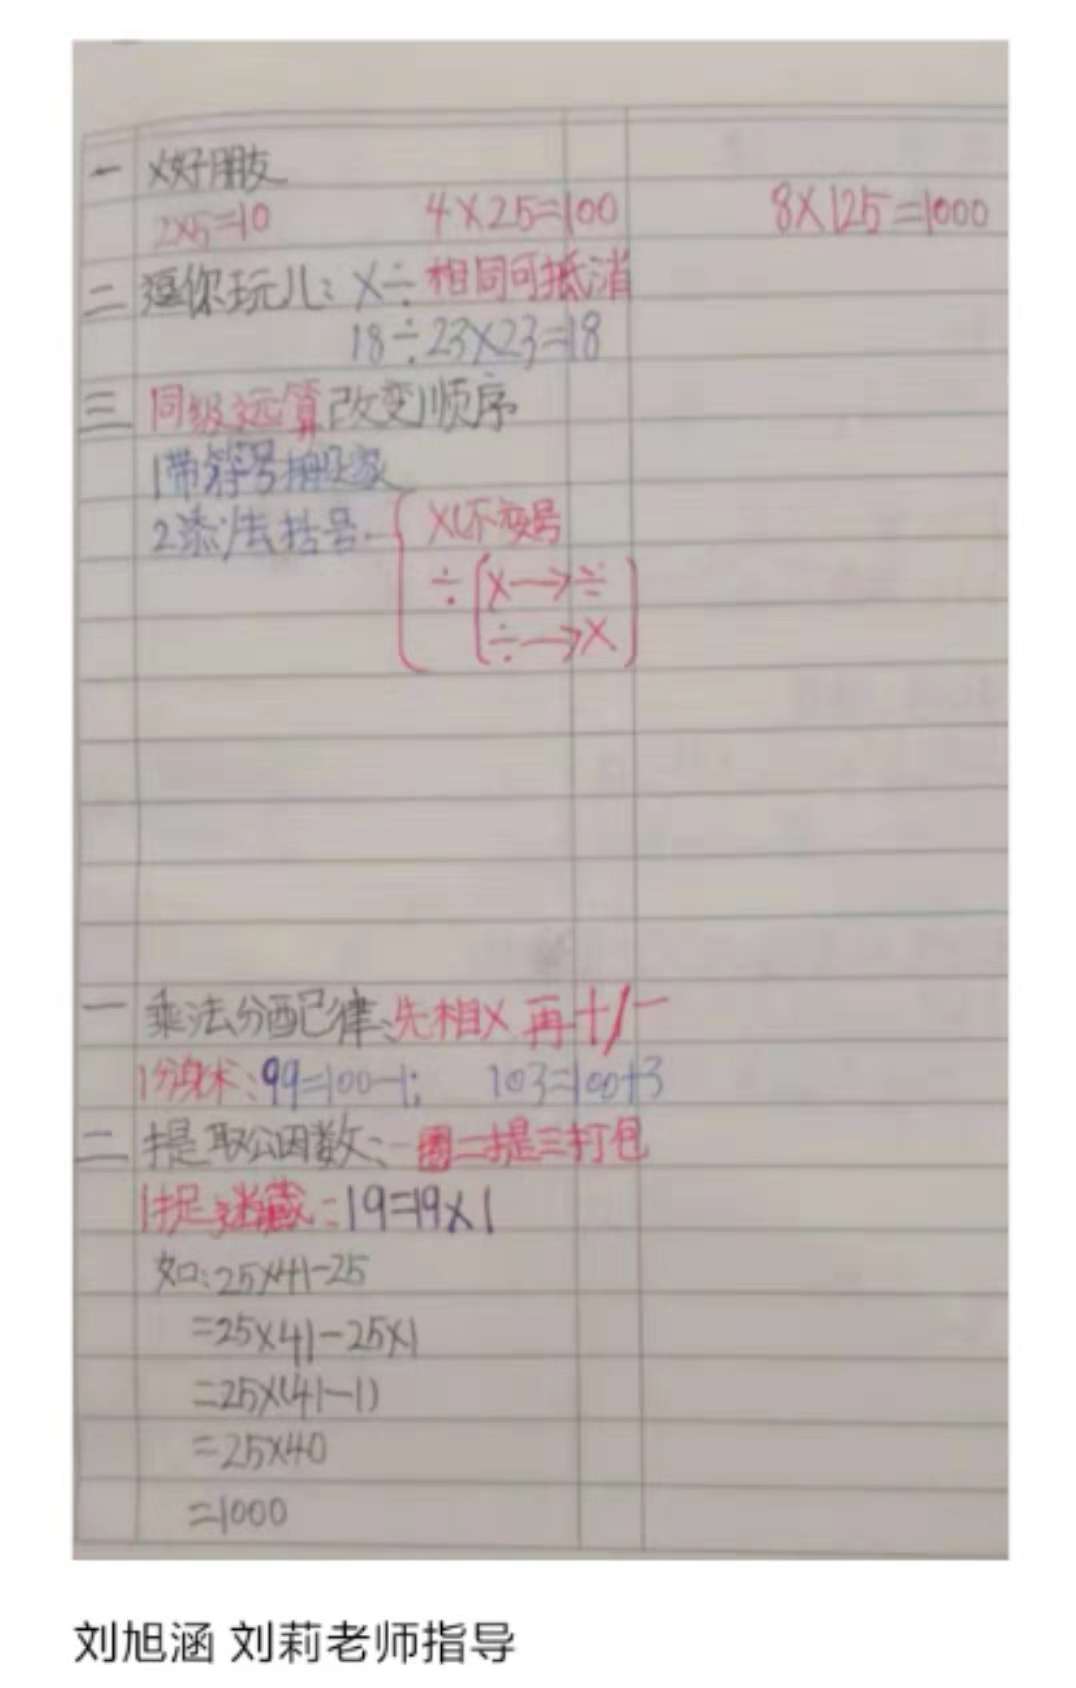 一 ×好朋友
2×5=10 4×25=100 8×125=1000
二 逗你玩儿: ×÷ 相同可抵消
18÷23×23=18
三 同级运算改变顺序
1带符号搬家
2添/去括号
×(不变号
÷(×→÷
÷→×)
一 乘法分配律: 先相× 再+/-
1分身术: 99=100-1; 103=100+3
二 提取公因数: 一圈二提三打包
1捉迷藏: 19=19×1
如: 25×41-25
=25×41-25×1
=25×(41-1)
=25×40
=1000
刘旭涵 刘莉老师指导